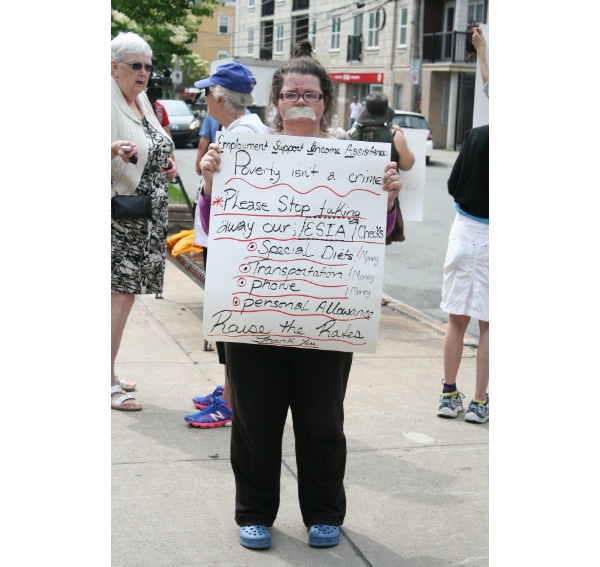 Employment Support Income Assistance
Poverty isn't a crime
*Please Stop taking
away our; /ESIA/ Checks
Special Diets / Money
Transportation / Money
phone / Money
personal Allowance
Raise the Rates
Thank You